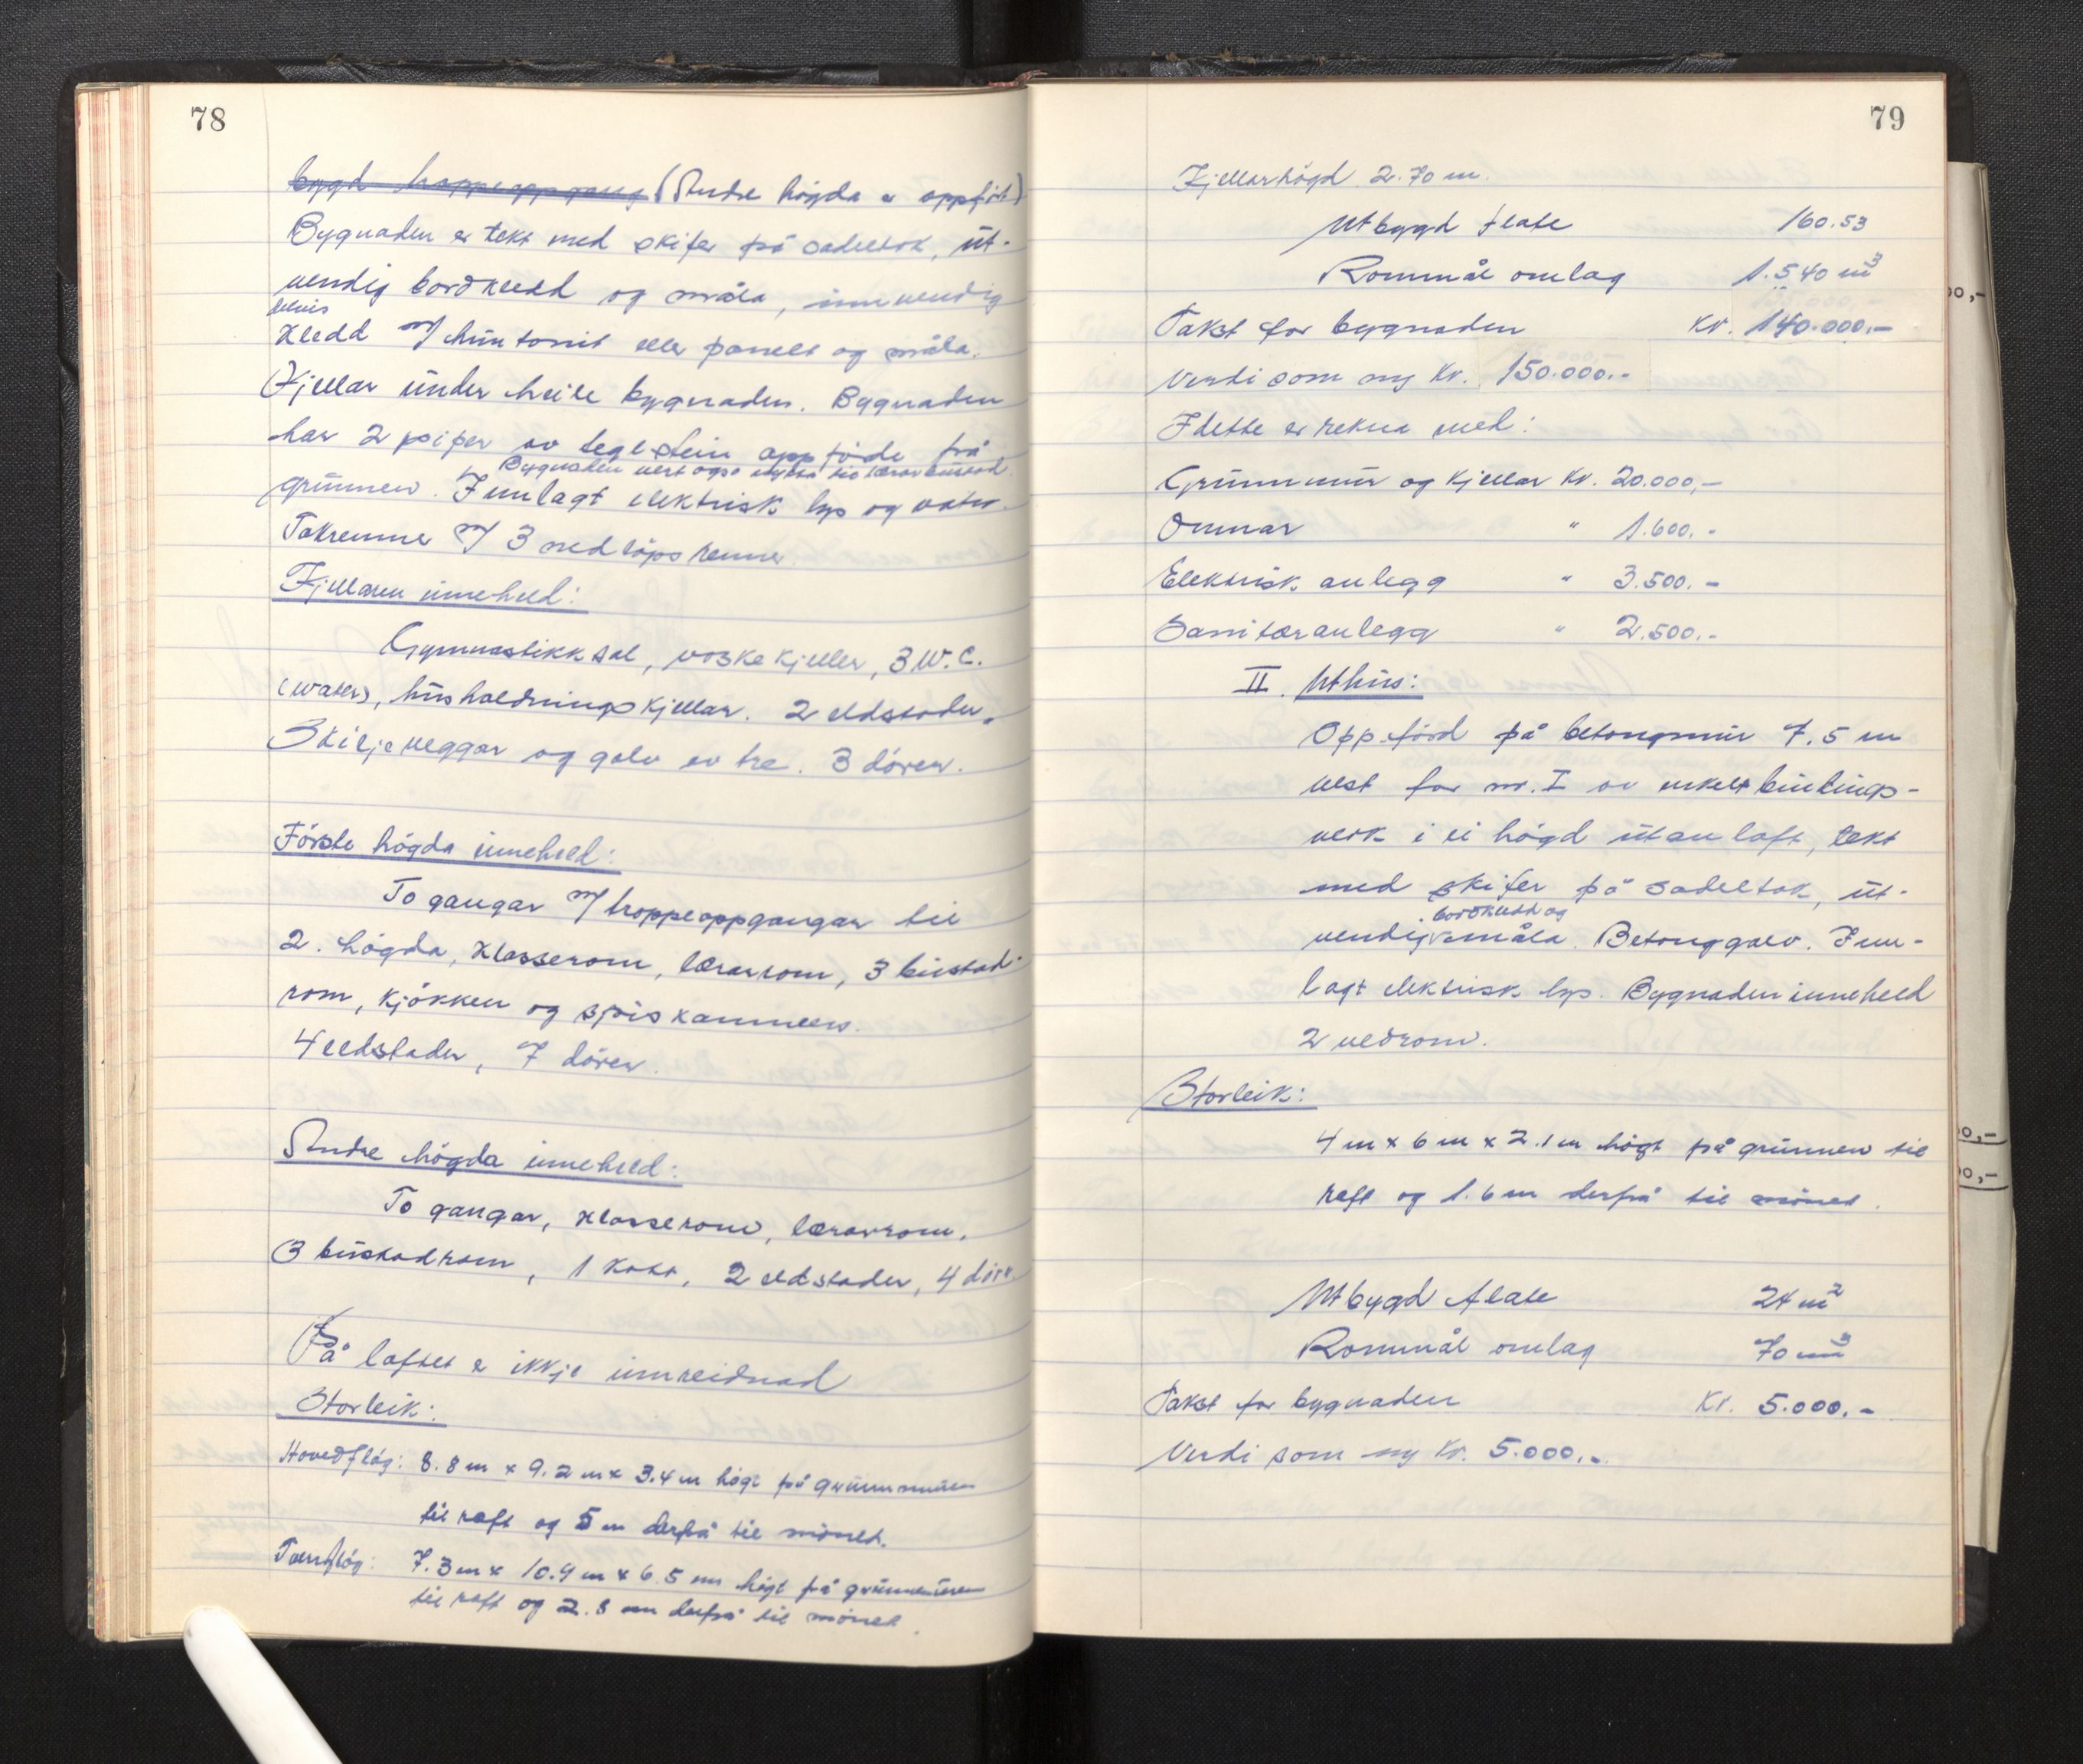 78
bygd trappeoppgang (Andre högda er oppfört)
Bygnaden er tekt med skifer på sadeltak, ut-
vendig bordkledd og måla, innvendig
delvis
kledd m/ huntonit eller panelt og måla.
Kjellar under heile bygnaden. Bygnaden
har 2 piper av teglstein oppförde frå
Bygnaden vert også nytta til lærarbustad.
grunnen. Innlagt elektrisk lys og vatn.
Takrenne m/ 3 nedlöpsrenner.
Kjellaren inneheld:
Gymnastikksal, vaskekjeller, 3 W.C.
(water), husholdningskjellar. 2 eldstader.
Skiljeveggar og golv av tre. 3 dörer.
Förste högda inneheld:
To gangar m/ troppeoppgangar til
2. högda, klasserom, lærarrom, 3 bustad-
rom, kjökken og spiskammers.
4 eldstader, 7 dörer.
Andre högda inneheld:
To gangar, klasserom, lærarrom,
3 bustadrom, 1 kott, 2 eldstader, 4 dörer.
På loftet er ikkje innreidnad
Storleik:
Hovedflög: 8.8 m x 9.2 m x 3.4 m högt frå grunnmuren
til raft og 5 m derfrå til mönet.
Tverrflög: 7.3 m x 10.9 m x 6.5 m högt frå grunnmuren
til raft og 2.8 m derfrå til mönet.
79
Kjellarhögd 2.70 m.
Utbygd flate 160.53
Rommål omlag 1.540 m³
Takst for bygnaden kr. 140.000,-
Verdi som ny kr. 150.000.-
I dette er rekna med:
Grunnmur og kjellar kr. 20.000,-
Omnar " 1.600.-
Elektrisk anlegg " 3.500.-
Sanitæranlegg " 2.500.-
II. Uthus:
Oppförd på betongmur 7.5 m
vest for nr. I av enkelt bindings-
verk i ei högd utan loft, tekt
med skifer på sadeltak, ut-
bordkledd og
vendig måla. Betonggolv. Inn-
lagt elektrisk lys. Bygnaden inneheld
2 vedrom.
Storleik:
4 m x 6 m x 2.1 m högt frå grunnen til
raft og 1.6 m derfrå til mönet.
Utbygd flate 24 m²
Rommål omlag 70 m³
Takst for bygnaden Kr. 5.000.-
Verdi som ny kr. 5.000.-